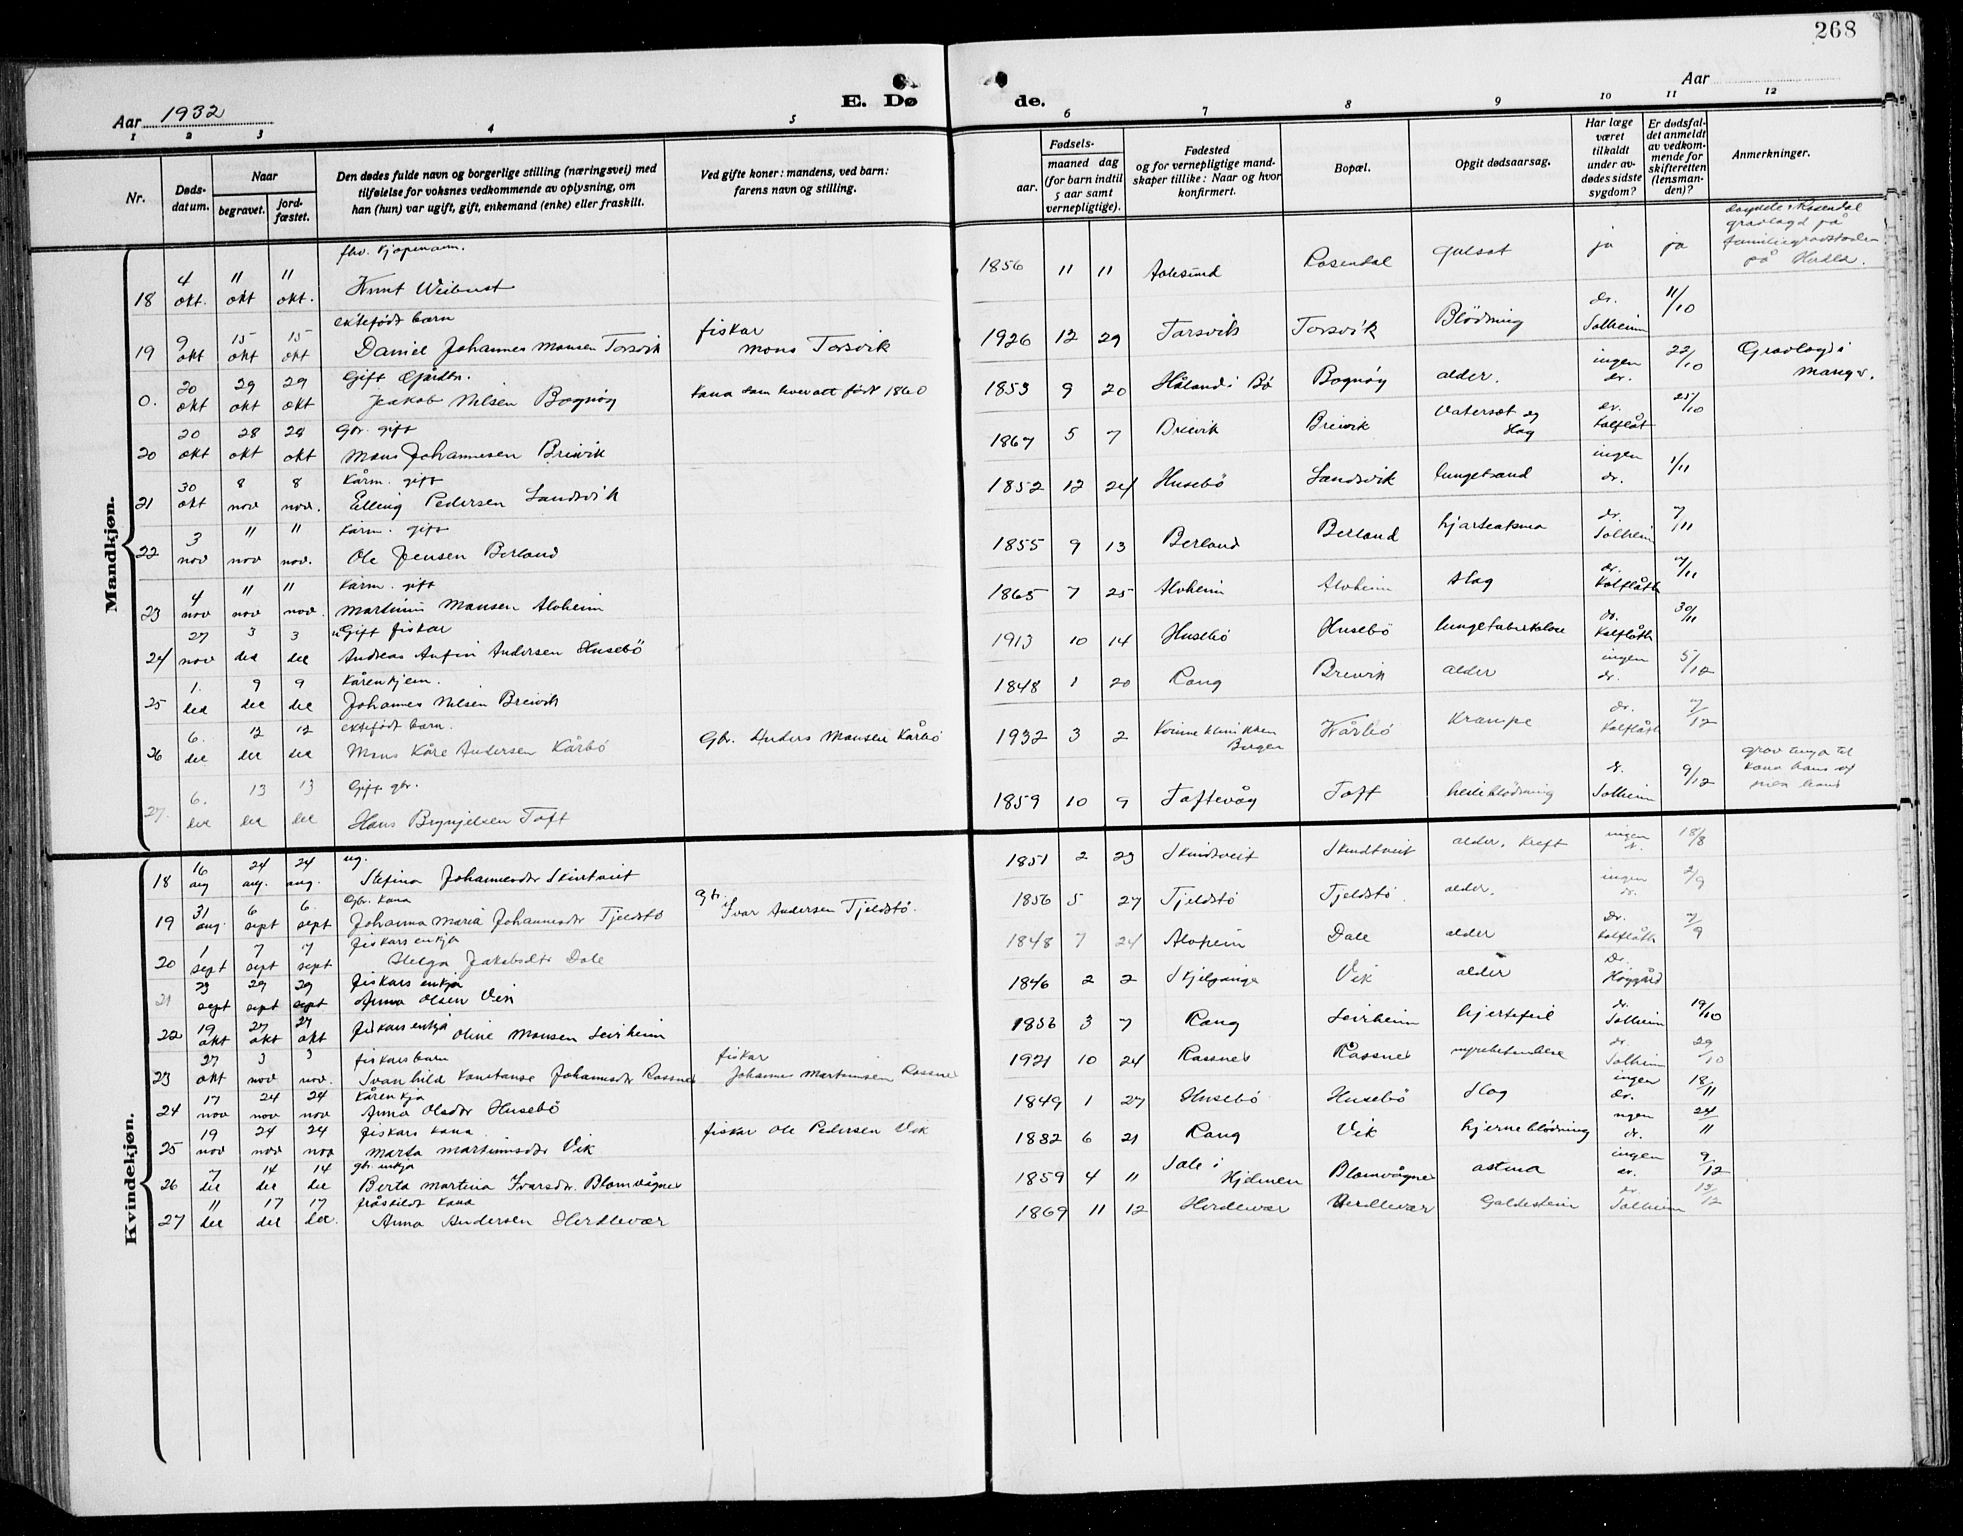 268
Aar 1932
E. Dø
de.
Aar
1 2 3 4 5 6 7 8 9 10 11 12
Nr.
Døds-
datum.
Naar
begravet.
jord-
fæstet.
Den dødes fulde navn og borgerlige stilling (næringsvei) med
tilføielse for voksnes vedkommende av oplysning, om
han (hun) var ugift, gift, enkemand (enke) eller fraskilt.
Ved gifte koner: mandens, ved barn:
farens navn og stilling.
Fødsels-
aar.
maaned dag
(for barn indtil
5 aar samt
vernepligtige).
Fødested
og for vernepligtige mand-
skaper tillike: Naar og hvor
konfirmert.
Bopæl.
Opgit dødsaarsag.
Har læge
været
tilkaldt
under av-
dødes sidste
sygdom?
Er dødsfal-
det anmeldt
av vedkom-
mende for
skifteretten
(lensman-
den)?
Anmerkninger.
Mandkjøn.
fhv. kjøpmann.
18 4 okt. 11 okt 11 okt. Knut Weibust 1856 11 11 Aalesund Rosendal gulsot ja ja
på Herdla.
ektefødt barn
19 9 okt 15 okt 15 okt Daniel Johannes Monsen Torsvik fiskar Mons Torsvik 1926 12 29 Torsvik Torsvik Blödning dr. Solheim 11/10
Gift Gårdbr.
0. 20 okt 29 okt 29 okt Jeakob Nilsen Bognøy kona som lever att født 1860 1853 9 20 Håland i Bø Bognøy alder. ingen dr. 22/10 Gravlagd i Manger.
Gbr. gift
20 20 okt 28 okt 28 okt Mons Johannesen Breivik 1867 5 7 Breivik Breivik Vatersot og slag dr. Kalflåt 25/10
Kårm. gift
21 30 okt 8 nov 8 nov. Elling Pedersen Landsvik 1852 12 24 Husebö Landsvik ingen dr. 1/11
Kårm. gift
22 3 nov 11 nov 11 nov. Ole Jensen Berland 1855 9 13 Berland Berland hjarteastma dr. Solheim 7/11
Kårm. gift
23 4 nov 11 nov 11 nov. Martinus Monsen Alvheim 1865 7 25 Alvheim Alvheim slag dr. Kalflåth 7/11
uGift fiskar
24 27 nov 3 des 3 des Andreas Anfin Andersen Husebö 1913 10 14 Husebö Husebö lungetuberkulose dr. Kalflåth 30/11
Kårenkjem.
25 1. des 9 des 9 des Johannes Nilsen Breivik 1848 1 20 Rong Breivik alder ingen dr. 5/12
ektefødt barn.
26 6. des 12 des 12 des Mons Kåre Andersen Kårbö Gbr. Anders Monsen Kårbö 1932 3 2 Kvinneklinikken Bergen Kårbö Krampe dr. Kalflåth 7/12
Gift gbr.
27. 6. des 13 des 13 des Hans Brynjelsen Toft 1859 10 9 Toftevåg Toft heileblødning dr. Solheim 9/12
Kvindekjøn.
ug.
18 16 aug 24 aug. 24 aug. Stefina Johannesdtr Skintveit 1851 2 23 Skindtveit alder, kreft ingen dr. 18/8
Gbr. kona
19 31 aug. 6 sept 6. sept Johanna Maria Johannesdtr Tjeldstö gbr. Ivar Andersen Tjeldstö. 1856 5 27 Tjeldstö Tjeldstö. alder. ingen dr. 2/9
fiskars enkja
20 1 sept 7 sept 7 sept Helga Jakobsdtr Dale 1848 7 24 Alvheim Dale alder Dr. Kalflåth 7/9
fiskars enkja
21 23 sept 29 sept 29 sept Anna Olsen Vik 1846 2 2 Skjelganger Vik alder Dr. Höygård
22 19 okt 27 okt 27 okt fiskars enkja Oline Monsen Leirheim 1856 3 7 Rong Leirheim hjertefeil dr. Solheim 19/10
fiskars barn
23 27 okt 3 nov 3 nov. Svanhild Konstanse Johannesdtr Rossnes fiskar Johannes Martinusen Rossnes 1921 10 24 Rossnes Rossnes nyrebetendelse dr. Solheim 29/10
Kårenkja
24 17 nov 24 nov 24 nov Anna Olsdtr Husebö 1849 1 27 Husebö Husebö slag ingen dr. 18/11
fiskars kona
25 19 nov 24 nov 24 nov Marta Martinusdtr Vik fiskar Ole Pedersen Vik 1882 6 21 Rong Vik hjerneblödning ingen dr. 24/11
gbr. enkja
26 7 des 14 des 14 des Berta Martina Ivarsdtr. Blomvågnes 1859 4 11 Sole i Hjelmen Blomvågnes astma ingen dr. 9/12
fråskildt kona
27 11 des 17 des 17 des. Anna Andersen Herdlevær 1869 11 12 Herdlevær Herdlevær Galdestein dr. Solheim 13/12